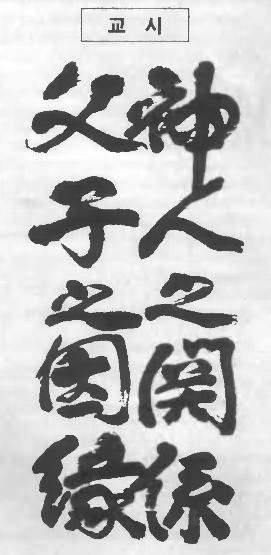 교시
神人之関係
父子之因緣